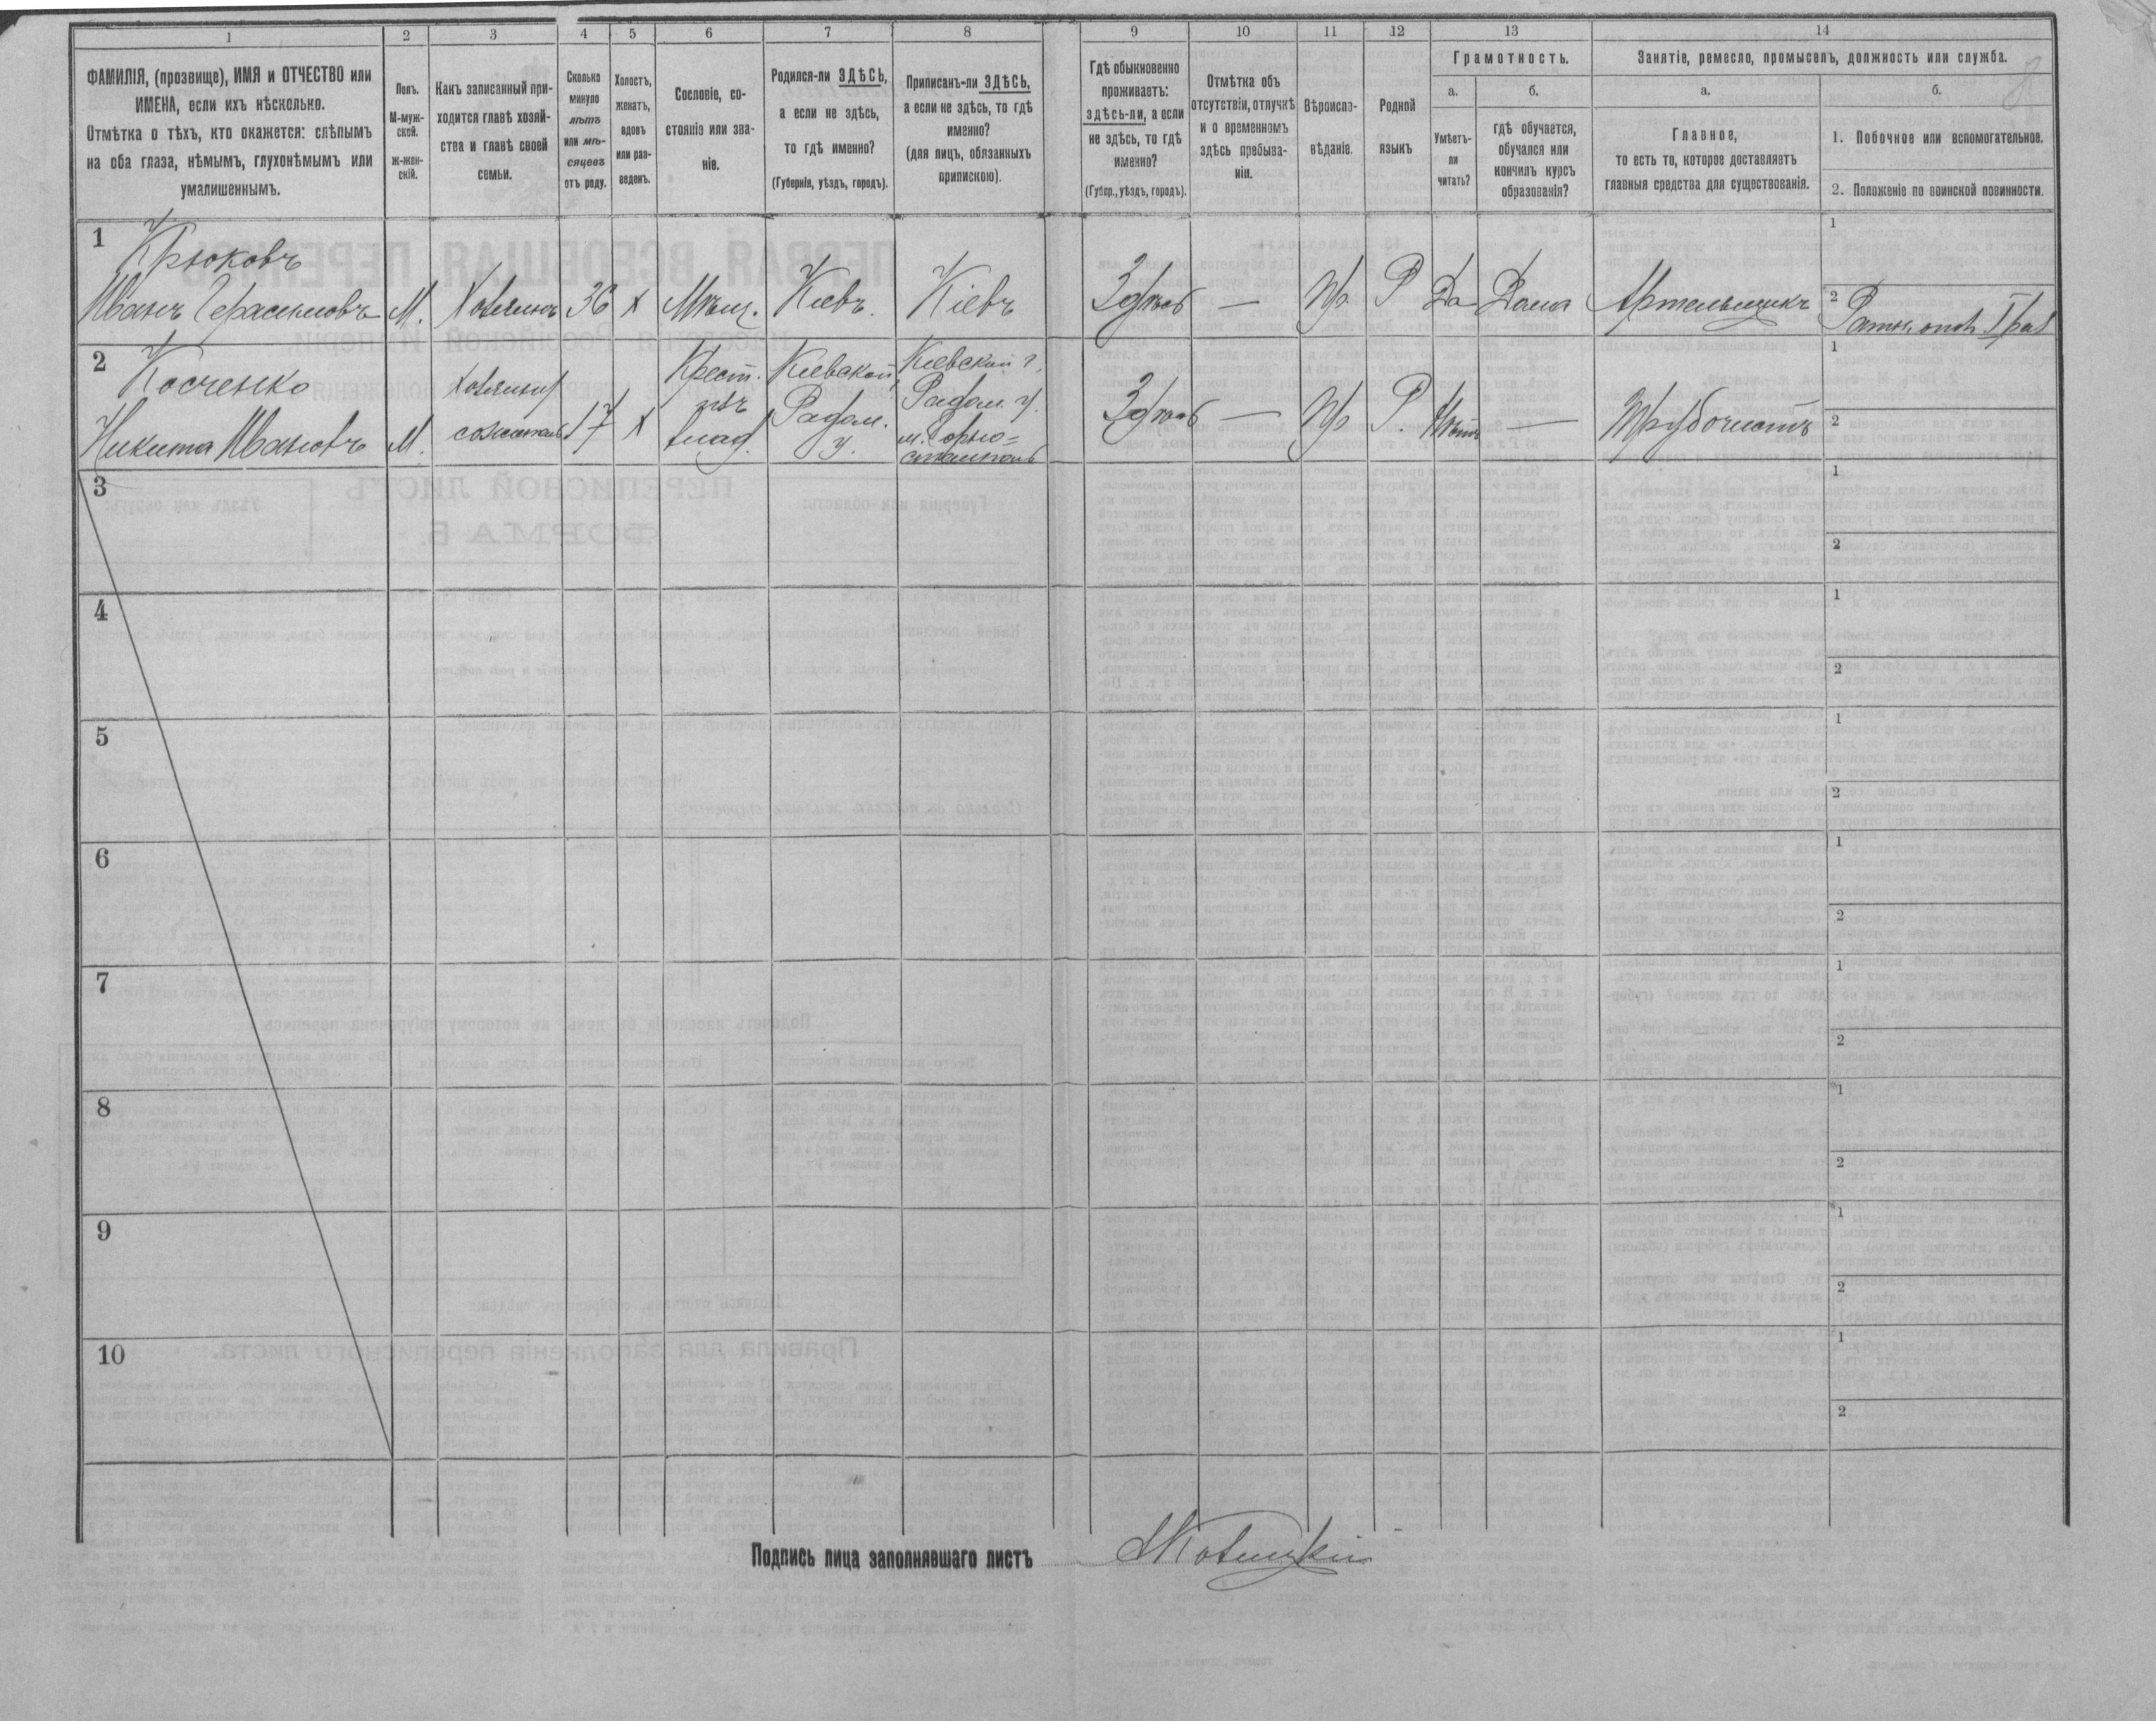 1 2 3 4 5 6 7 8 9 10 11 12 13 14
ФАМИЛІЯ, (прозвище), ИМЯ и ОТЧЕСТВО или
ИМЕНА, если ихъ нѣсколько.
Отмѣтка о тѣхъ, кто окажется: слѣпымъ
на оба глаза, нѣмымъ, глухонѣмымъ или
умалишеннымъ.
Полъ.
М-муж-
ской.
ж-жен-
скій.
Какъ записанный при-
ходится главѣ хозяй-
ства и главѣ своей
семьи.
Сколько
минуло
лѣтъ
или мѣ-
сяцевъ
отъ роду.
Холостъ,
женатъ,
вдовъ
или раз-
веденъ.
Сословіе, со-
стояніе или зва-
ніе.
Родился-ли ЗДѢСЬ,
а если не здѣсь,
то гдѣ именно?
(Губернія, уѣздъ, городъ).
Приписанъ-ли ЗДѢСЬ,
а если не здѣсь, то гдѣ
именно?
(для лицъ, обязанныхъ
припискою).
Гдѣ обыкновенно
проживаетъ:
здѣсь-ли, а если
не здѣсь, то гдѣ
именно?
(Губер., уѣздъ, городъ).
Отмѣтка объ
отсутствіи, отлучкѣ
и о временномъ
здѣсь пребыва-
ніи.
Вѣроиспо-
вѣданіе.
Родной
языкъ
Грамотность.
а.
Умѣетъ-
ли
читать?
б.
гдѣ обучается,
обучался или
кончилъ курсъ
образованія?
Занятіе, ремесло, промыселъ, должность или служба.
а.
Главное,
то есть то, которое доставляетъ
главныя средства для существованія.
б.
1. Побочное или вспомогательное.
2. Положеніе по воинской повинности.
1 Крюковъ
Иванъ Герасимовъ М. Хозяинъ 36 х Мѣщ. Кіевъ. Кіевъ Здѣсь — Пр Р Да Дома Артельщикъ
1
2 Ратн. опол. I раз
2 Косченко
Никита Ивановъ М. Хозяину
сожитель 17 х Крест.
изъ
влад. Кіевской
Радом.
у. Кіевской г.
Радом. у.
м. Горно=
стайполь Здѣсь — Пр Р. Нѣтъ — Трубочистъ
1
2
3
1
2
4
1
2
5
1
2
6
1
2
7
1
2
8
1
2
9
1
2
10
1
2
Подпись лица заполнявшаго листъ